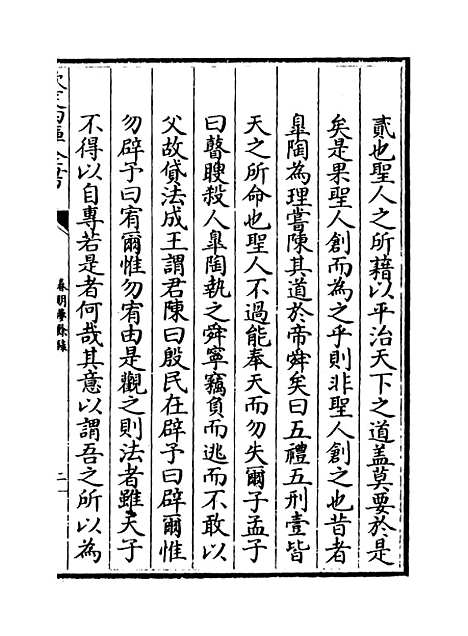 貳也聖人之所藉以平治天下之道蓋莫要於是
矣是果聖人創而為之乎則非聖人創之也昔者
臯陶為理嘗陳其道於帝舜矣曰五禮五刑壹皆
天之所命也聖人不過能奉天而勿失爾子孟子
曰瞽瞍殺人臯陶執之舜寧竊負而逃而不敢以
父故貸法成王謂君陳曰殷民在辟予曰辟爾惟
勿辟予曰宥爾惟勿宥由是觀之則法者雖天子
不得以自專若是者何哉其意以謂吾之所以為
欽定四庫全書
春明夢餘錄